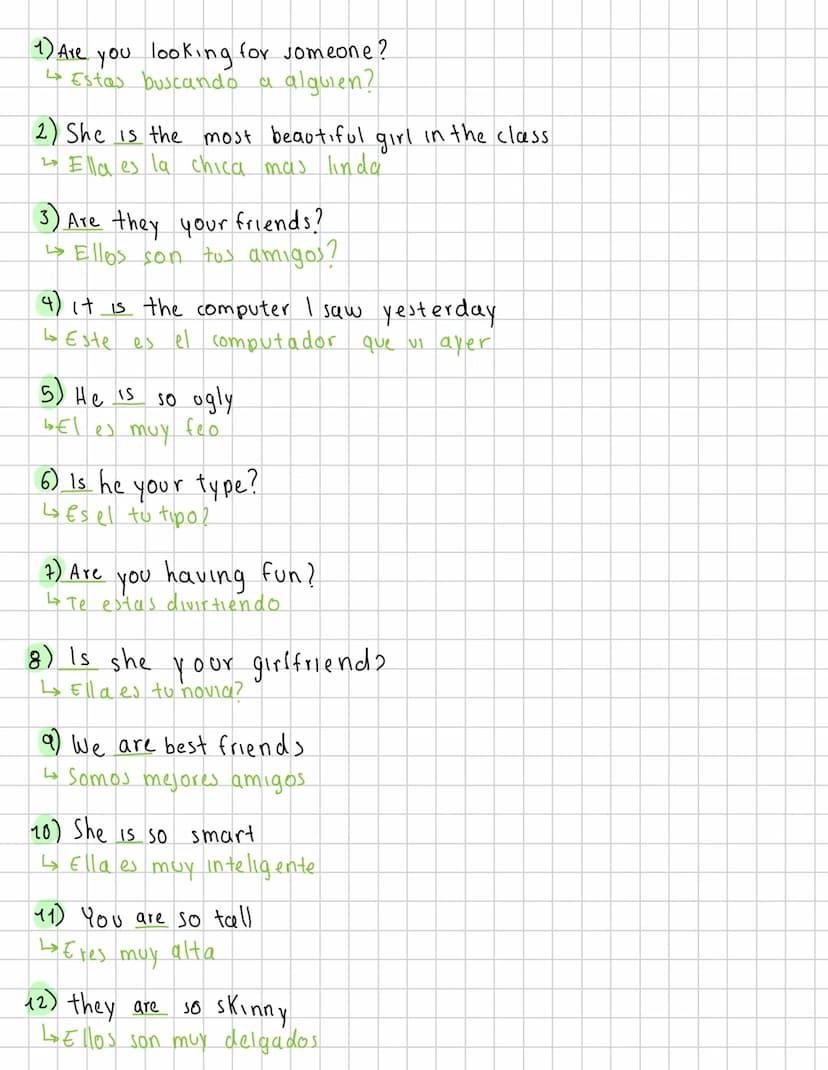 1) Are you looking for someone?
↳ Estas buscando a alguien?
2) She is the most beautiful girl in the class
↳ Ella es la chica mas linda
3) Are they your friends?
↳ Ellos son tus amigos?
4) It is the computer I saw yesterday
↳ Este es el computador que vi ayer
5) He is so ogly
↳ El es muy feo
6) Is he your type?
↳ Es el tu tipo?
7) Are you having fun?
↳ Te estas divirtiendo
8) Is she your girlfriend?
↳ Ella es tu novia?
9) We are best friends
↳ Somos mejores amigos
10) She is so smart
↳ Ella es muy inteligente
11) You are so tall
↳ Eres muy alta
12) they are so skinny
↳ Ellos son muy delgados